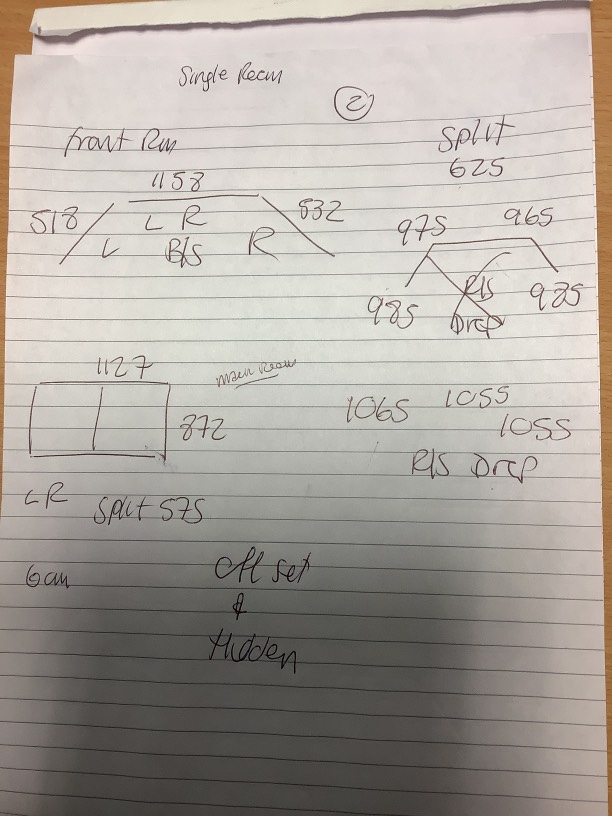 Single Room
2
front Rm
Split
625
1158
518
L R
532
L B/S R
975
965
985
R/S
Drop
925
1127
Main Room
872
1065
1055
1055
R/S Drop
LR
Split 575
Off set
&
Hidden